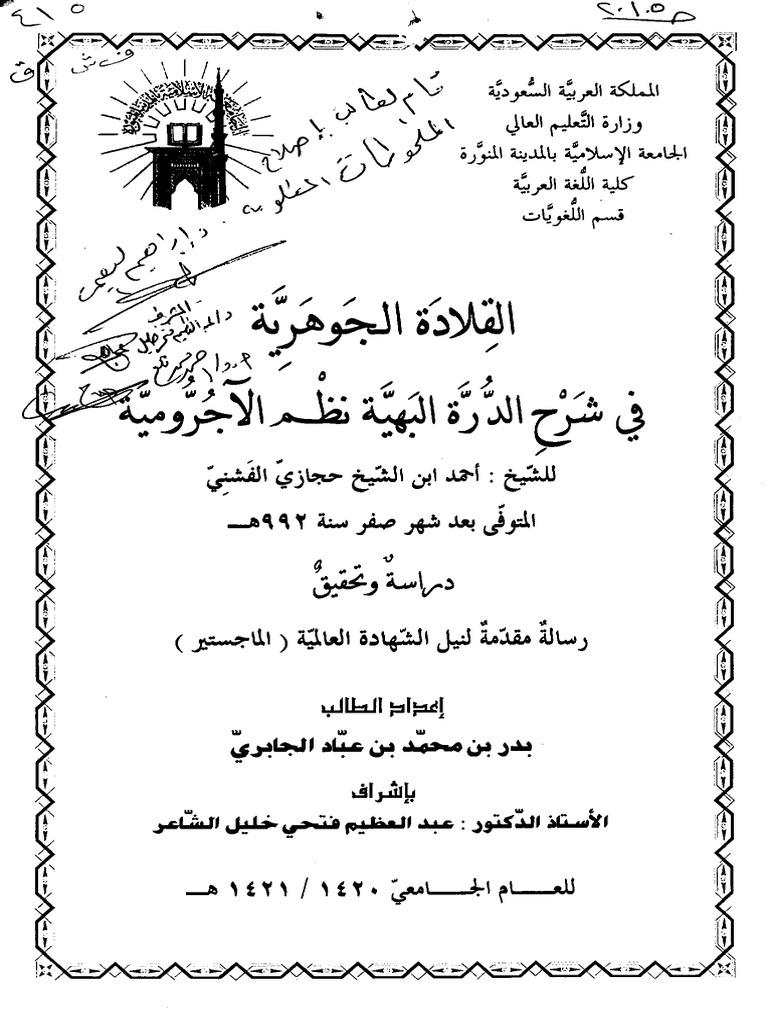 المملكة العربيَّة السُّعوديَّة
وزارة التَّعليم العالي
الجامعة الإسلاميَّة بالمدينة المنوَّرة
كلية اللُّغة العربيَّة
قسم اللُّغويَّات
قام الطالب بإصلاح
الملحوظات المطلوبة
المشرف
القِلادَة الجَوهَرِيَّة
في شَرْحِ الدُّرَّة البَهيَّة نظْم الآجُرُّوميَّة
للشّيخ : أحمد ابن الشّيخ حجازيّ الفَشنِيّ
المتوفّى بعد شهر صفر سنة ٩٩٢هـــ
دراسةٌ وتحقيقٌ
رسالةٌ مقدّمةٌ لنيل الشّهادة العالميّة ( الماجستير )
إعداد الطالب
بدر بن محمّد بن عبّاد الجابريّ
بإشراف
الأستاذ الدّكتور : عبد العظيم فتحي خليل الشّاعر
للعـــــام الجـــــامعيّ ١٤٢٠ / ١٤٢١ هـــ